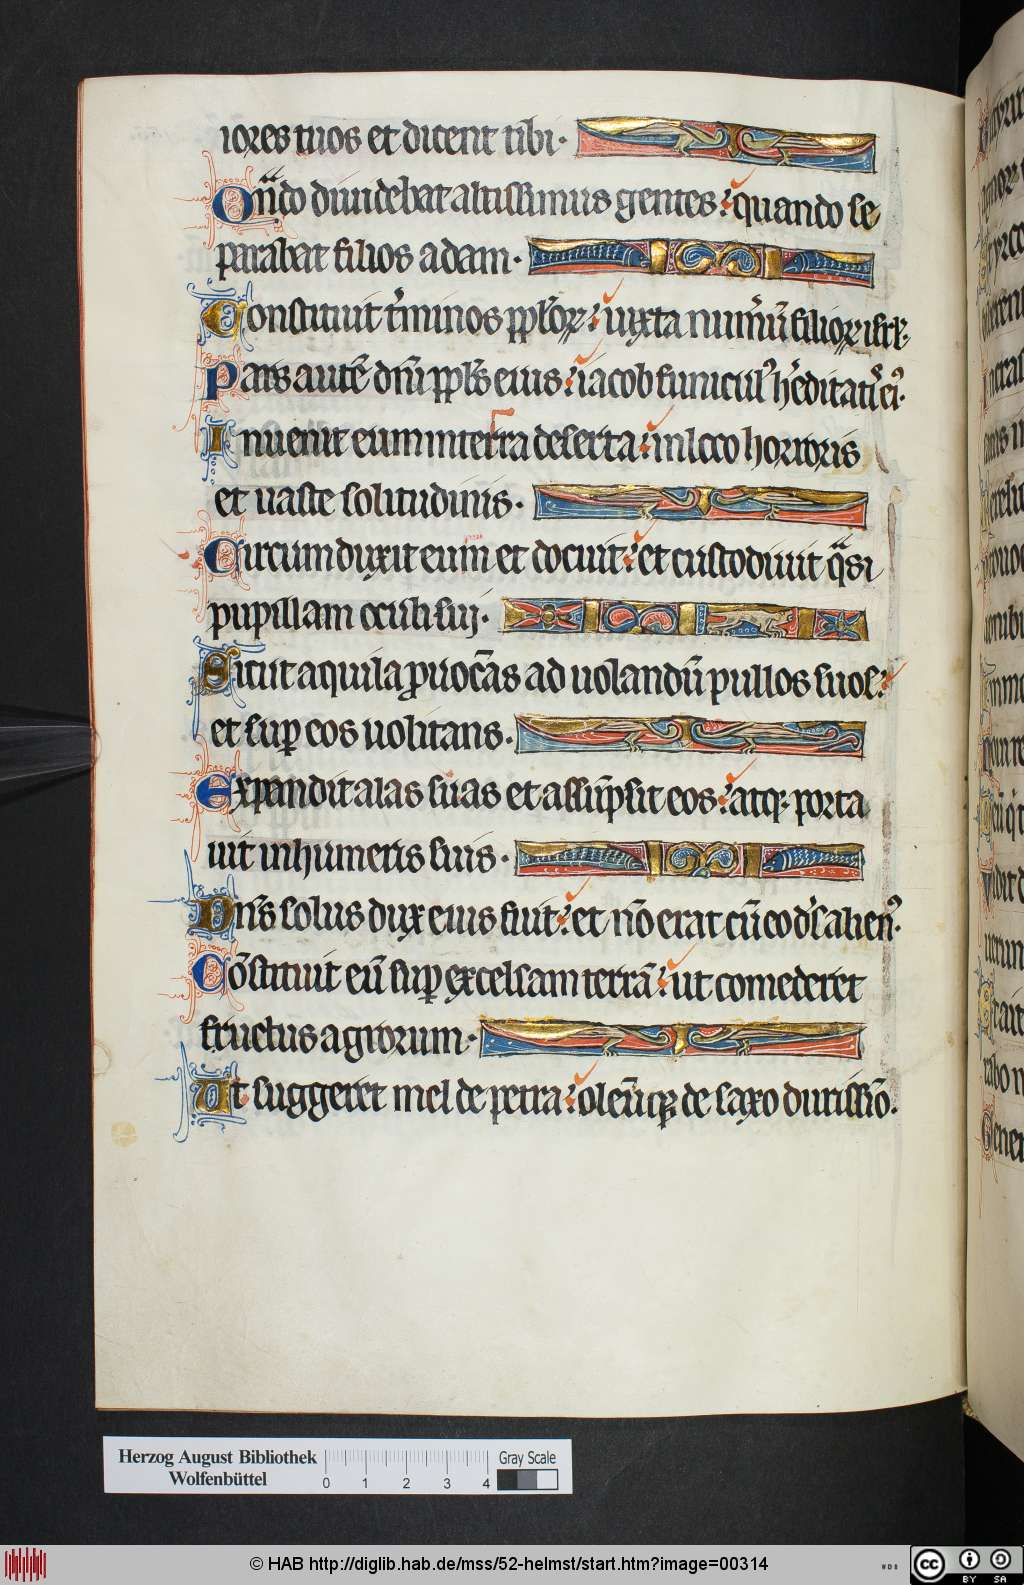 iores tuos et dicent tibi·
Qn̄do diuidebat altissimus gentes: quando se
parabat filios adam·
Constituit t̓minos pp̄loꝝ: iuxta num̓ū filioꝝ isrl·
Pars autē dn̄i pp̄ls eius: iacob funiculꝰ h̓editatꝭ eiꝰ·
Inuenit eum in terra deserta: in loco horroris
et uaste solitudinis·
Circumduxit eum et docuit: et custodiuit qᵃsi
pupillam oculi sui·
Sicut aquila ꝓuocās ad uolandū pullos suos:
et suꝑ eos uolitans·
Expandit alas suas et assūpsit eos: atq; porta
uit in humeris suis·
Dn̄s solus dux eius fuit: et nō erat cū eo d̓s alienꝰ·
Cōstituit eū suꝑ excelsam terrā: ut comederet
fructus agrorum·
Ut suggeret mel de petra: oleūq; de saxo durissīo·
Herzog August Bibliothek
Wolfenbüttel
0 1 2 3 4
Gray Scale
© HAB http://diglib.hab.de/mss/52-helmst/start.htm?image=00314
WDB
cc BY SA